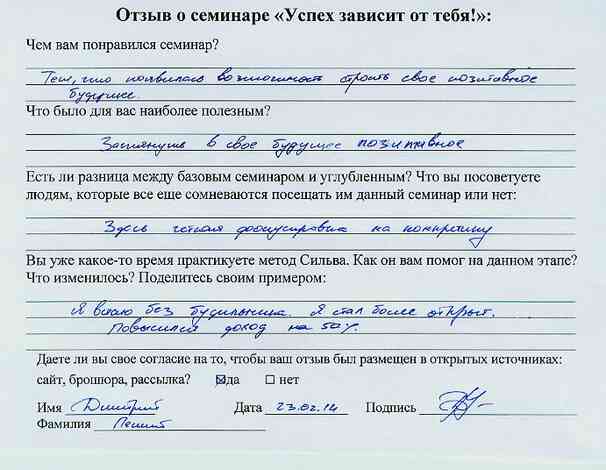 Отзыв о семинаре «Успех зависит от тебя!»:
Чем вам понравился семинар?
Тем, что появилась возможность строить свое позитивное
будущее
Что было для вас наиболее полезным?
Заглянуть в свое будущее позитивное
Есть ли разница между базовым семинаром и углубленным? Что вы посоветуете
людям, которые все еще сомневаются посещать им данный семинар или нет:
Здесь четкая фокусировка на конкретику
Вы уже какое-то время практикуете метод Сильва. Как он вам помог на данном этапе?
Что изменилось? Поделитесь своим примером:
Я встаю без будильника. Я стал более открыт.
Повысился доход на 50%.
Даете ли вы свое согласие на то, чтобы ваш отзыв был размещен в открытых источниках:
сайт, брошюра, рассылка? ☒да ☐ нет
Имя Дмитрий Дата 23.02.14 Подпись
Фамилия